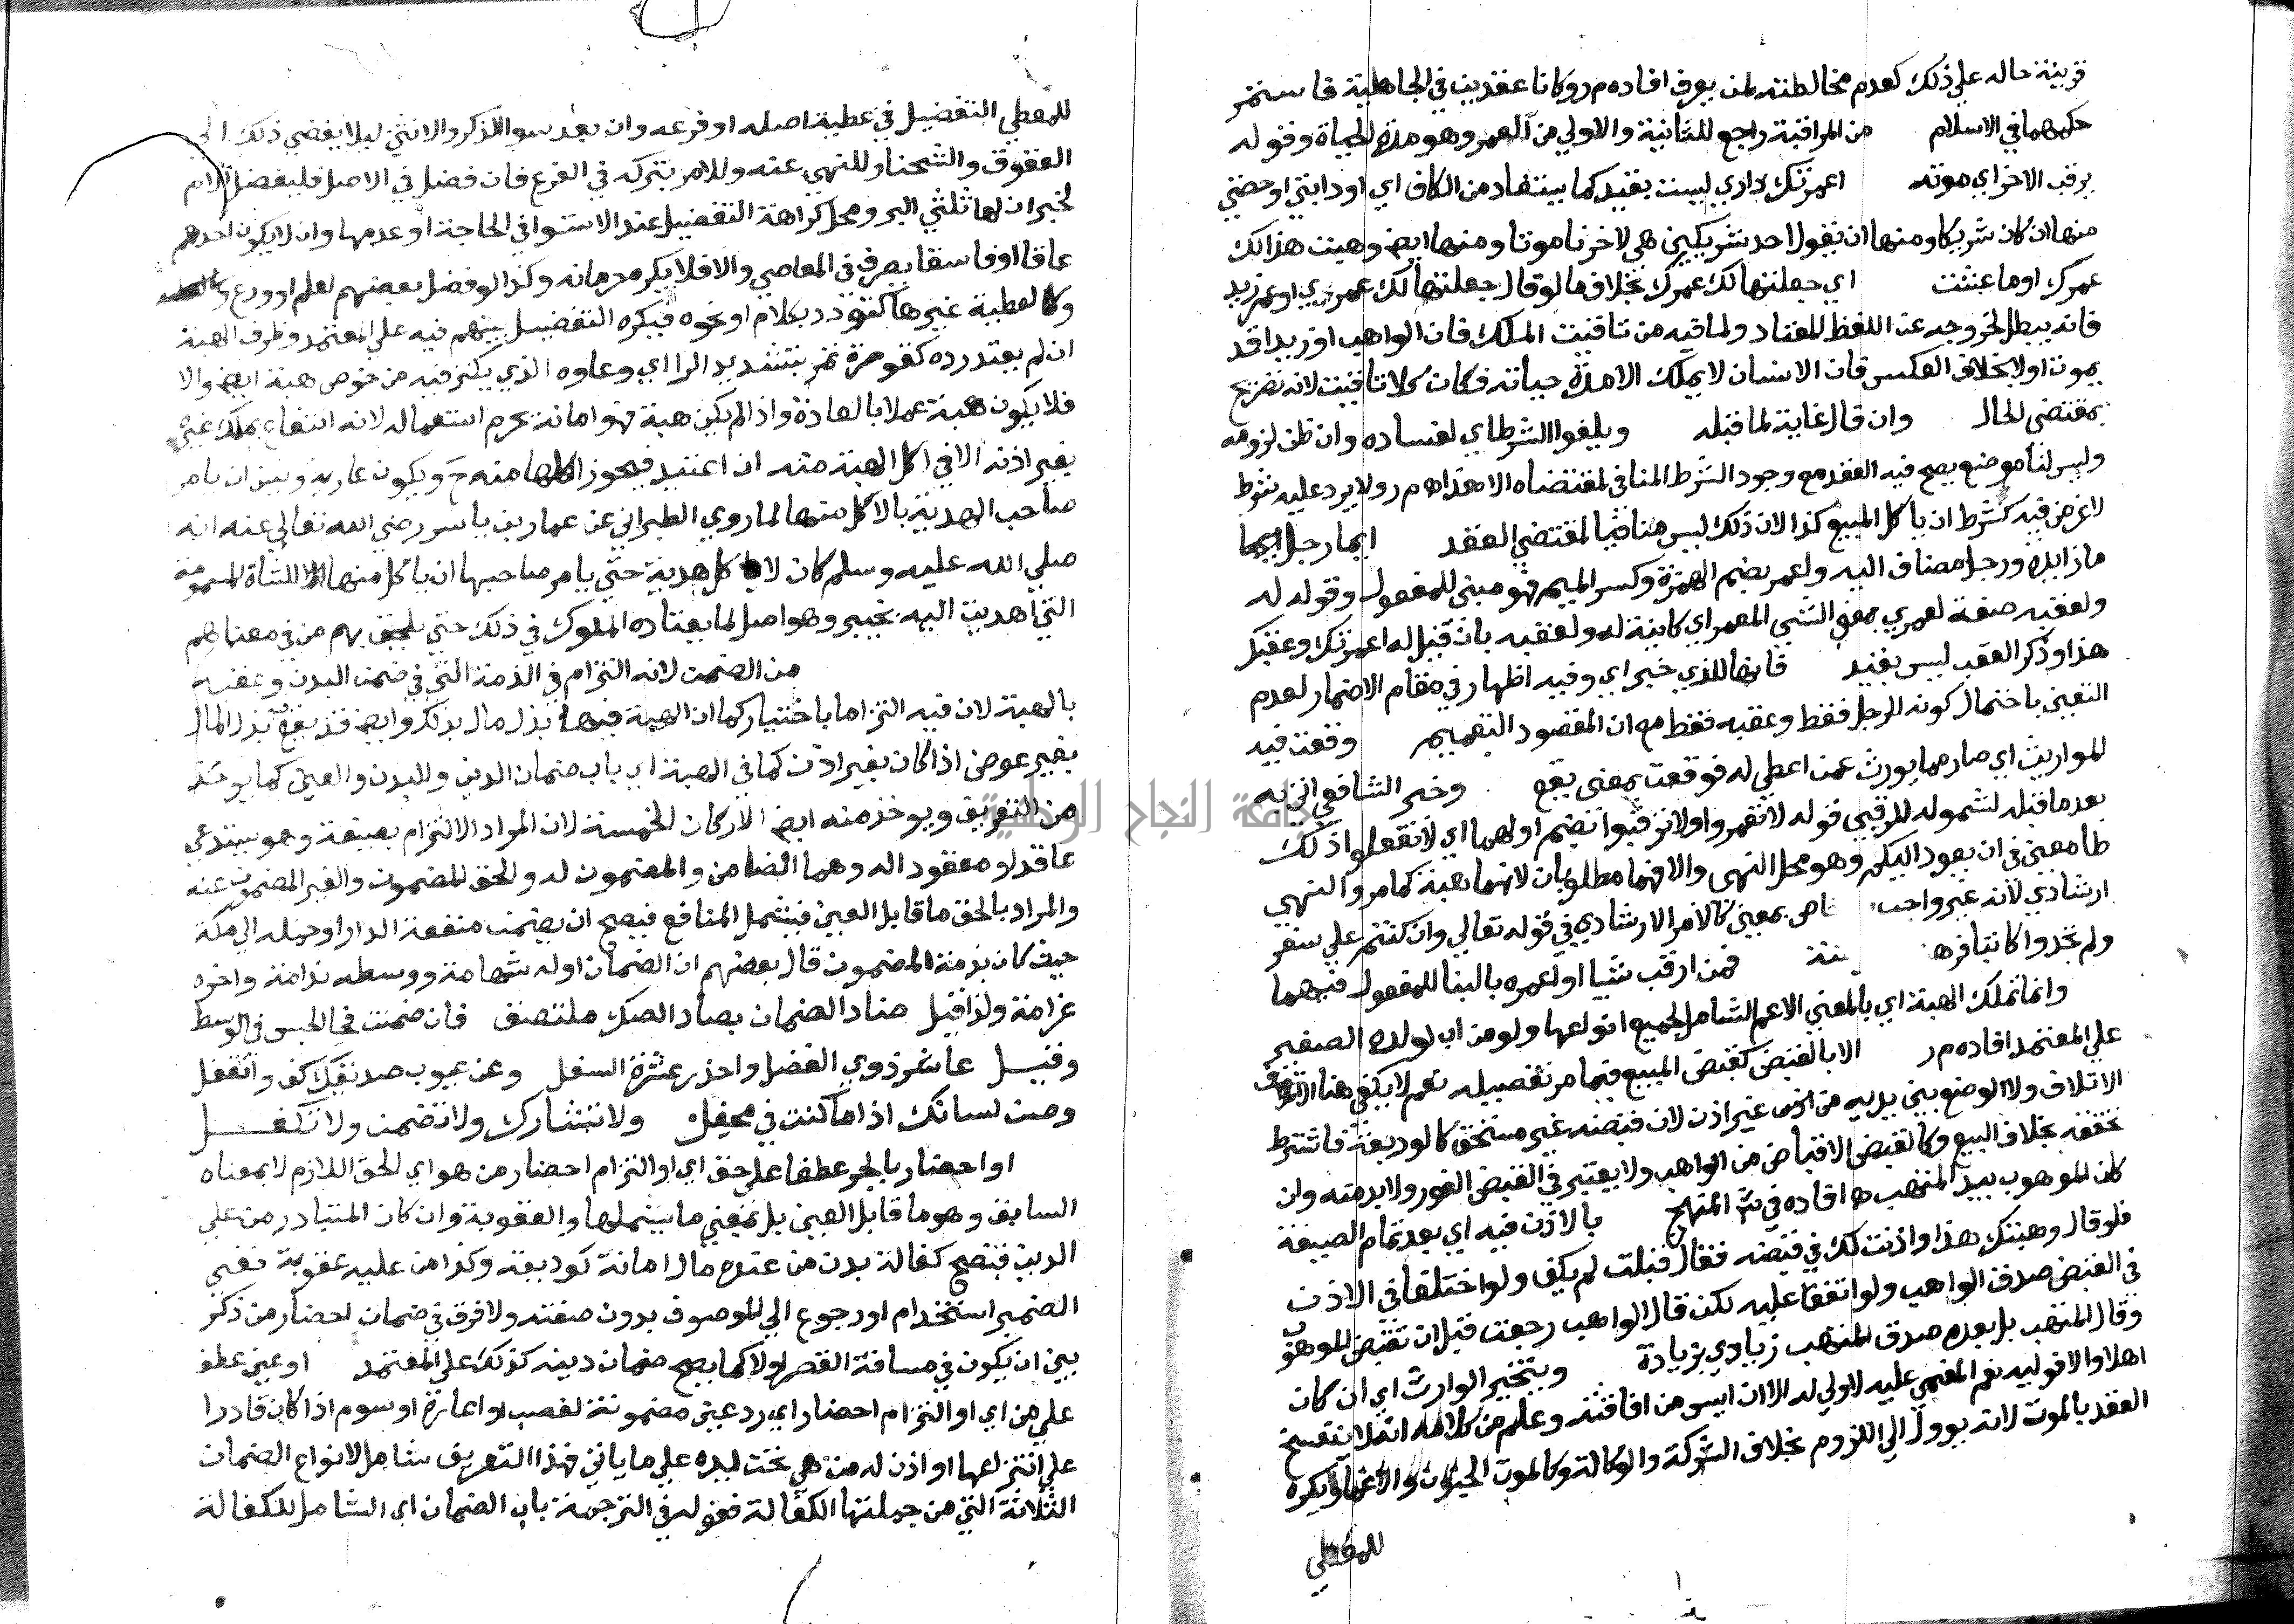 قرينة حاله على ذلك كعدم مخالطته لمن يعرف افاده م ر وكانا عقدين في الجاهلية فاستمر
حكمهما في الاسلام من المراقبة راجع للثانية والاولي من العمر وهو مدة الحياة وقوله
يرقب الاخر اي موته اعمرتك داري ليست بقيد كما يستفاد من الكاف اي او دابتي او حصتي
منها ان كان شريكا ومنها ان يقول احد شريكين هي لاخرنا موتا ومنها ايض وهبت هذا لك
عمرك او ما عشت اي جعلتها لك عمرك بخلاف ما لو قال جعلتها لك عمري او عمر زيد
فانه يبطل لخروجه عن اللفظ المعتاد ولما فيه من تاقيت الملك فان الواهب او زيدا قد
يموت اولا بخلاف العكس فان الانسان لا يملك الا مدة حياته فكان كلا تاقيت لانه تصريح
بمقتضى الحال وان قال غاية لما قبله ويلغوا الشرط اي لفساده وان ظن لزومه
وليس لنا موضع يصح فيه العقد مع وجود الشرط المنافي لمقتضاه الا هذا اهم ر ولا يرد عليه شرط
لاغرض فيه كشرط ان ياكل المبيع كذا لان ذلك ليس منافيا لمقتضي العقد ايما رجل
ما زايدة ورجل مضاف اليه واعمر بضم الهمزة وكسر الميم فهو مبنى للمفعول وقوله له
ولعقبه صفة لعمري بمعنى الشي المعمر اي كاينة له ولعقبه بان قيل له اعمرتك وعقبك
هذا وذكر العقب ليس بقيد فانها للذي خبر اي وفيه اظهار في مقام الاضمار لعدم
التعين باحتمال كونه للرجل فقط وعقبه فقط مع ان المقصود التعميم وقعت فيه
المواريث اي صار مما يورث عمن اعطي له فوقعت بمعنى يقع وخبر الشافعي اتي به
بعد ما قبله لشموله للرقبي قوله لا تعمروا ولا ترقبوا بضم اولهما اي لا تفعلوا ذلك
طامعين في ان يعود اليكم وهو محل النهي والا فهما مطلوبان لانهما هبة كما مر والنهي
ارشادي لانه غير واجب بمعين كالامر الارشادي في قوله تعالي وان كنتم على سفر
ولم تجدوا كاتبا فرهن فمن ارقب شيا او اعمره بالبنا للمفعول فيهما
وانما تملك الهبة اي بالمعنى الاعم الشامل لجميع انواعها ولو من اب لولده الصغير
على المعتمد افاده م ر الا بالقبض كقبض المبيع فيما مر تفصيله نعم لا يكفي هنا
الاتلاف ولا الوضع بين يديه من غير اذن لان قبضه غير مستحق كالوديعة فاشترط
تحققه بخلاف البيع وكالقبض الاقباض من الواهب ولا يعتبر في القبض الفور ولا بد منه وان
كان الموهوب بيد المتهب افاده في ش المنهج بالاذن فيه اي بعد تمام الصيغة
فلو قال وهبتك هذا واذنت لك في قبضه فقال قبلت لم يكف ولو اختلفا في الاذن
في القبض صدق الواهب ولو اتفقا عليه لكن قال الواهب رجعت قبل ان تقبض الموهوب
وقال المتهب بل بعده صدق المتهب زيادي بزيادة ويتخير الوارث اي ان كان
اهلا والا فوليه نعم المغمي عليه لاولي له الا ان ايس من افاقته وعلم من كلامه انه لا ينفسخ
العقد بالموت لانه يوول الي اللزوم بخلاف الشركة والوكالة وكالموت الجنون والاغما ويكره
للمعطي
للمعطي التفضيل في عطية اصله او فرعه وان بعد سوا الذكر والانثى ليلا يفضي ذلك الى
العقوق والشحنا وللنهي عنه وللامر بتركه في الفرع فان فضل في الاصل فليفضل الام
لخبر ان لها ثلثي البر ومحل كراهة التفضيل عند الاستوا في الحاجة او عدمها وان لا يكون احدهم
عاقا او فاسقا يصرف في المعاصي والا فلا يكره حرمانه وكذا لو فضل بعضهم لعلم او ورع
وكالعطية غيرها كتودد بكلام او نحوه فيكره التفضيل بينهم فيه على المعتمد وظرف الهبة
ان لم يعتد رده كقوصرة تمر بتشديد الرا اي وعاوه الذي يكنز فيه من خوص هبة ايض والا
فلا يكون هبة عملا بالعادة واذا لم يكن هبة فهو امانة يحرم استعماله لانه انتفاع بملك غيره
بغير اذنه الا في اكل الهبة منه ان اعتيد فيجوز اكلها منه ح ويكون عارية ويسن ان يامر
صاحب الهدية بالاكل منها لما روي الطبراني عن عمار بن ياسر رضي الله تعالي عنه انه
صلي الله عليه وسلم كان لا ياكل هدية حتى يامر صاحبها ان ياكل منها للشاة المسمومة
التي اهديت اليه بخيبر وهو اصل لما يعتاده الملوك في ذلك حتى يلحق بهم من في معناهم
من الضمن لانه التزام في الذمة التي في ضمن البدن وعقبه
بالهبة لان فيه التزاما باختيار كما ان الهبة فيها بذل مال بذلك وايض قد يقع فيه بذل المال
بغير عوض اذا كان بغير اذن كما في الهبة اي باب ضمان الدين والبدن والعين كما يوخذ
من التعريف ويوخذ منه ايض الاركان الخمسة لان المراد الالتزام بصيغة وهو يستدعي
عاقدا ومعقودا له وهما الضامن والمضمون له والحق المضمون والغير المضمون عنه
والمراد بالحق ما قابل العين فيشمل المنافع فيصح ان يضمن منفعة الدار او حمله الي مكة
حيث كان بذمة المضمون قال بعضهم ان الضمان اوله شهامة ووسطه ندامة واخره
غرامة ولذا قيل ضاد الضمان بصاد الصك ملتصق فان ضمنت فحا الحبس في الوسط
وقيل عاشر ذوي الفضل واحذر عشرة السفل وعن عيوب صديقك كف وتغفل
وصن لسانك اذا ما كنت في محفل ولا تشارك ولا تضمن ولا تكفل
او احضار بالجر عطفا على حق اي او التزام احضار من هو اي الحق اللازم لا بمعناه
السابق وهو ما قابل العين بل بمعنى ما يشملها والعقوبة وان كان المتبادر من علي
الدين فتصح كفالة بدن من عنده مال امانة كوديعة وكذا من عليه عقوبة ففي
الضمير استخدام او رجوع الي الموصوف بدون صفته ولا فرق في ضمان احضار من ذكر
بين ان يكون في مسافة القصر اولا كما يصح ضمان دينه كذلك على المعتمد او عين عطف
علي من اي او التزام احضار اي رد عين مضمونة لغصب او اعارة او سوم اذا كان قادرا
على انتزاعها او اذن له من هي تحت يده على ما ياتي فهذا التعريف شامل لانواع الضمان
الثلاثة التي من جملتها الكفالة فقوله في الترجمة باب الضمان اي الشامل للكفالة
جامعة النجاح الوطنية